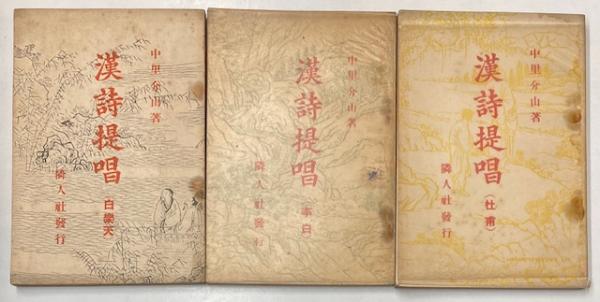 中里介山著
漢詩提唱
白樂天
隣人社發行
中里介山著
漢詩提唱
(李白)
隣人社發行
中里介山著
漢詩提唱
(杜甫)
隣人社發行